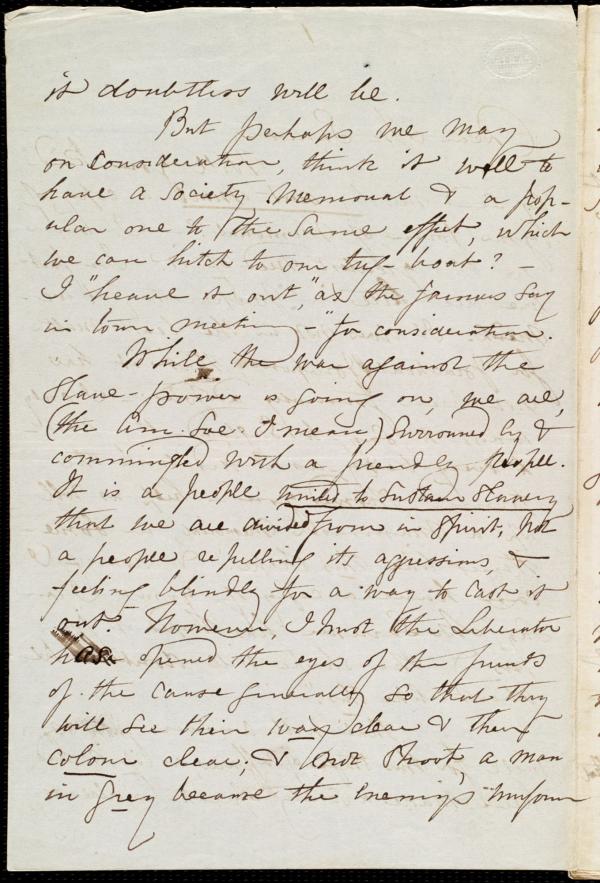 it doubtless will be.
But perhaps we may
on consideration, think it well to
have a Society Memorial & a pop-
ular one to the same effect, which
we can hitch to our tug-boat? -
I "heave it out," as the farmers say
in town meeting - "for consideration.
While the war against the
Slave-power is going on, we are,
(the Am. Soc. I mean) surrounded by &
commingled with a friendly people.
It is a people united to sustain Slavery
that we are divided from in spirit, not
a people repelling its aggressions, &
feeling blindly for a way to cast it
out. However, I trust the Liberator
has opened the eyes of the friends
of the cause generally so that they
will see their way clear & their
colour clear; & not shoot a man
in grey because the enemy's uniform